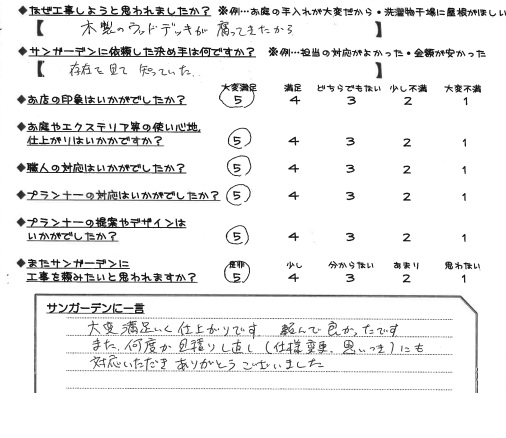 ◆なぜ工事しようと思われましたか？ ※例…お庭の手入れが大変だから・洗濯物干場に屋根がほしい
【 木製のウッドデッキが腐ってきたから 】
◆サンガーデンに依頼した決め手は何ですか？ ※例…担当の対応がよかった・金額が安かった
【 存在を見て知っていた 】
大変満足 満足 どちらでもない 少し不満 大変不満
◆お店の印象はいかがでしたか？ 5 4 3 2 1
◆お庭やエクステリア等の使い心地、
仕上がりはいかかですか？ 5 4 3 2 1
◆職人の対応はいかがでしたか？ 5 4 3 2 1
◆プランナーの対応はいかがでしたか？ 5 4 3 2 1
◆プランナーの提案やデザインは
いかがでしたか？ 5 4 3 2 1
◆またサンガーデンに 是非 少し 分からない あまり 思わない
工事を頼みたいと思われますか？ 5 4 3 2 1
サンガーデンに一言
大変満足いく仕上がりです 頼んで良かったです
また、何度か見積りし直し（仕様変更、思いつき）にも
対応いただきありがとうございました